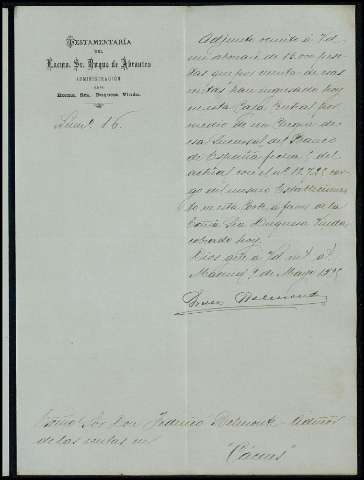 TESTAMENTARÍA
DEL
Excmo. Sr. Duque de Abrantes
ADMINISTRACION
Excma. Sra. Duquesa Viuda.
Num.º 16.
Adjunto remito á Vd.
mi abonaré de 15.000 pese-
tas que por cuenta de sus
rentas han ingresado hoy
en esta Caja Central por
medio de un
esa Sucursal del Banco
de España fecha del
actual con el nº car-
go del mismo Establecimien-
to en esta Corte á favor de la
Excma Sra Duquesa Viuda
cobrado hoy.
Dios gue á Vd. ms. as.
Madrid, de Mayo
Belmonte
Señor Don Federico Belmonte - Admor
de las rentas en
"Cáceres"